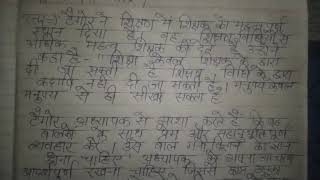 टैगोर ने शिक्षा में शिक्षक को महत्वपूर्ण
स्थान दिया है वह शिक्षण विधि से
अधिक महत्व शिक्षक को देते हैं उन्होंने
कहा है- "शिक्षा केवल शिक्षक के द्वारा
दी जा सकती है शिक्षण विधि के द्वारा
कदापि नहीं दी जा सकती है। मनुष्य केवल
मनुष्य से ही सीख सकता है
टैगोर अध्यापक से आशा करते हैं कि वह
बालकों के साथ प्रेम और सहानुभूति पूर्ण
व्यवहार करे। उसे बाल का ज्ञान
होना चाहिए अध्यापक को अपना आचरण
आदर्शपूर्ण रखना चाहिए जिससे